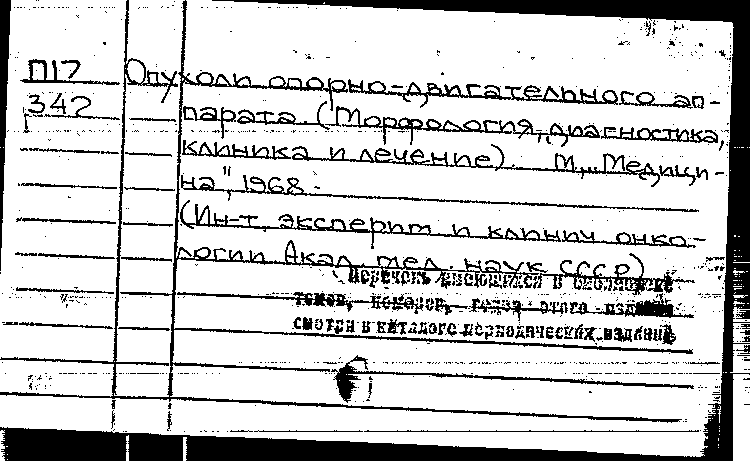 П17 Опухоли опорно-двигательного ап-
342 парата. (Морфология, диагностика,
клиника и лечение). М, „Медици-
на", 1968.
(Ин-т эксперим и клинич онко-
логии Акад мед наук СССР)
Перечень имеющихся в библиотеке
томов, номеров, годов этого издания
смотри в каталоге периодических изданий